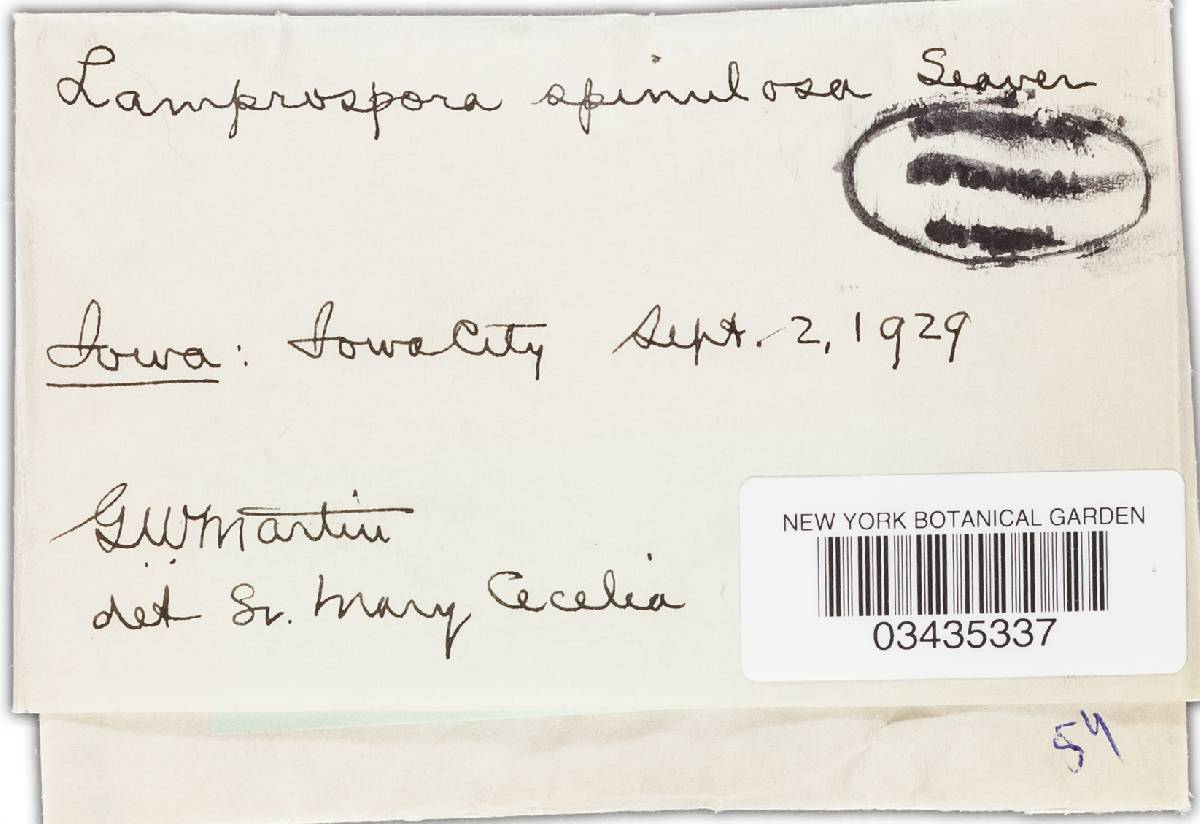 Lamprospora spinulosa Seaver
BOTANICAL
Iowa: Iowa City Sept. 2, 1929
GWMartin
det Sr. Mary Cecelia
NEW YORK BOTANICAL GARDEN
03435337
54